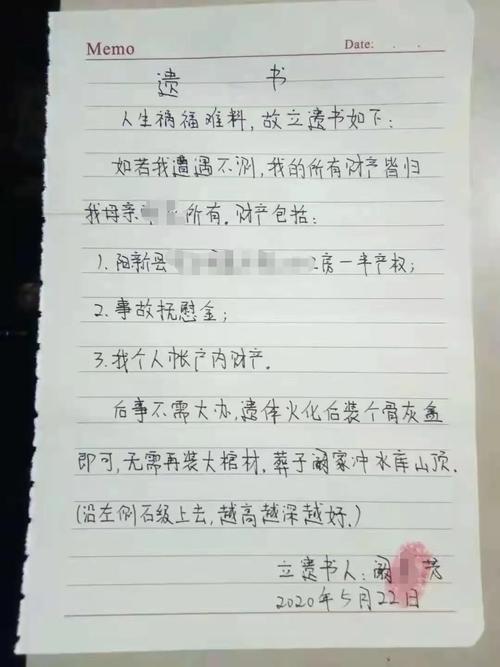 Memo
Date: . .
遗 书
人生祸福难料,故立遗书如下:
如若我遭遇不测,我的所有财产皆归
我母亲 所有.财产包括:
1.阳新县 房一半产权;
2.事故抚慰金;
3.我个人帐户内财产.
后事不需大办,遗体火化后装个骨灰盒
即可,无需再装大棺材.葬于阚家冲水库山顶.
(沿左侧石级上去,越高越深越好.)
立遗书人:阚 芳
2020年5月22日